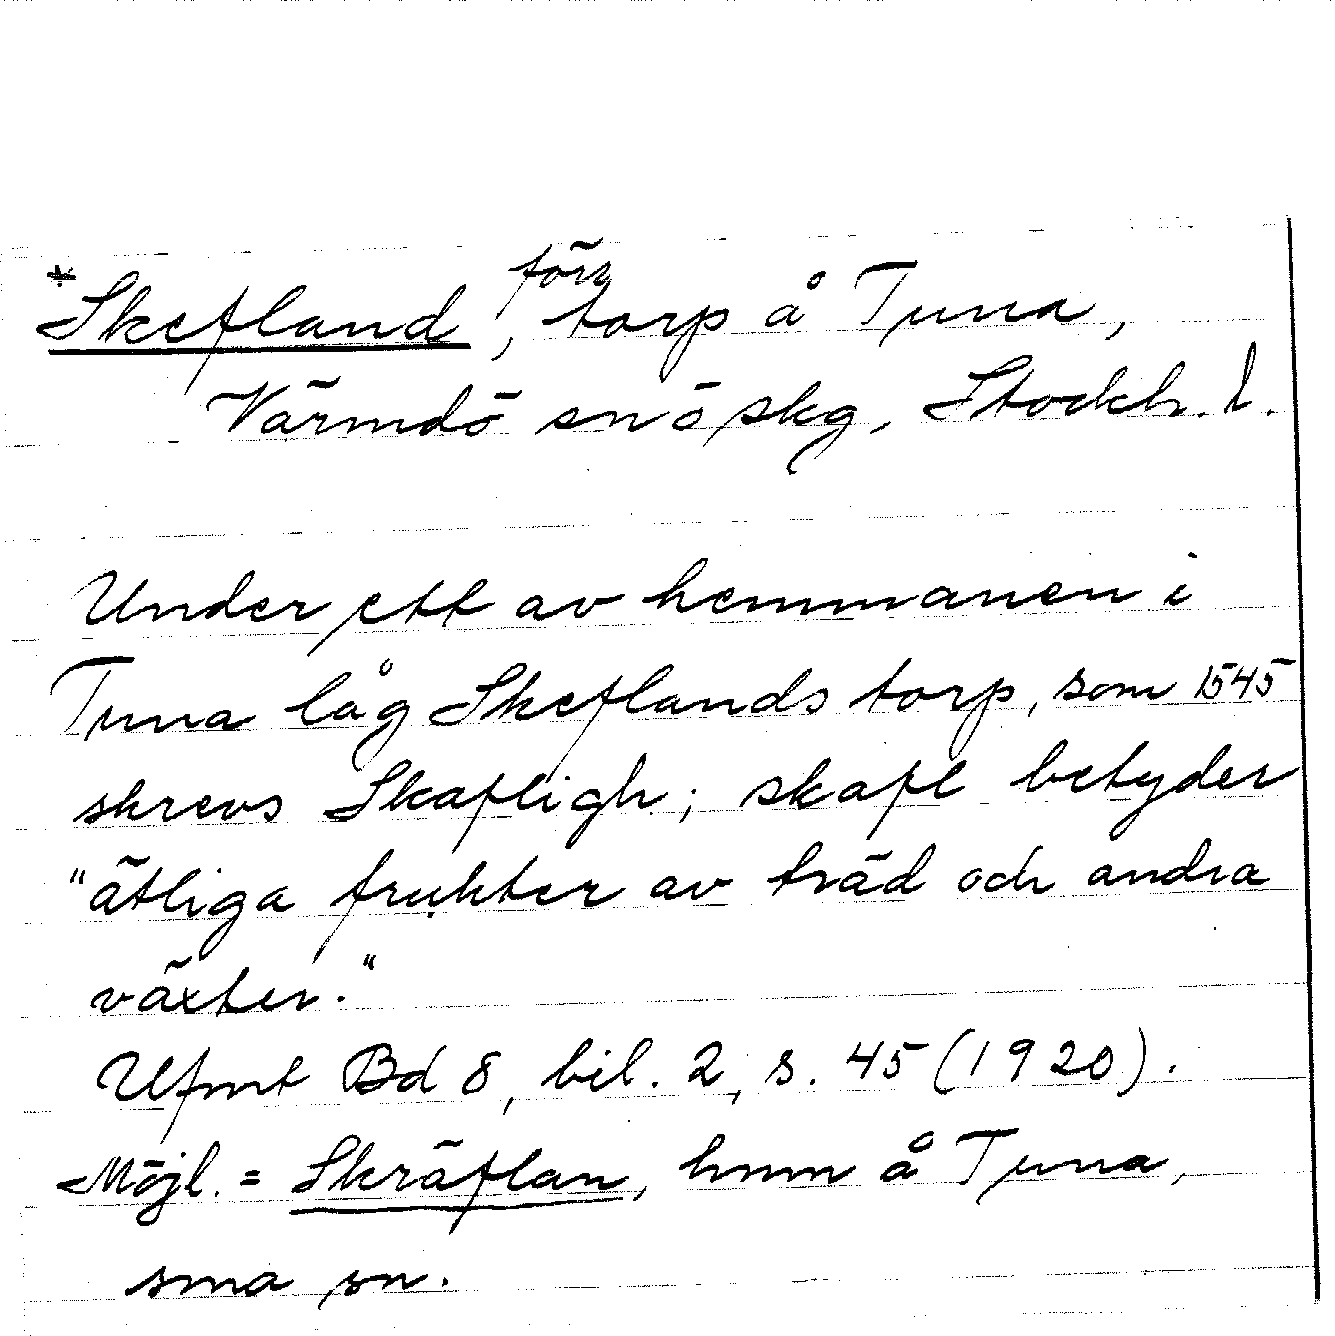 *Skefland, förs torp å Tuna,
Värmdö sn ö skg, Stockh. l.
Under ett av hemmanen i
Tuna låg Skeflands torp, som 1545
skrevs Skafligh; skafl betyder
"ätliga frukter av träd och andra
växter."
Ufmt Bd 8, bil. 2, s. 45 (1920).
Möjl. = Skräflan, hmn å Tuna,
sma sn.